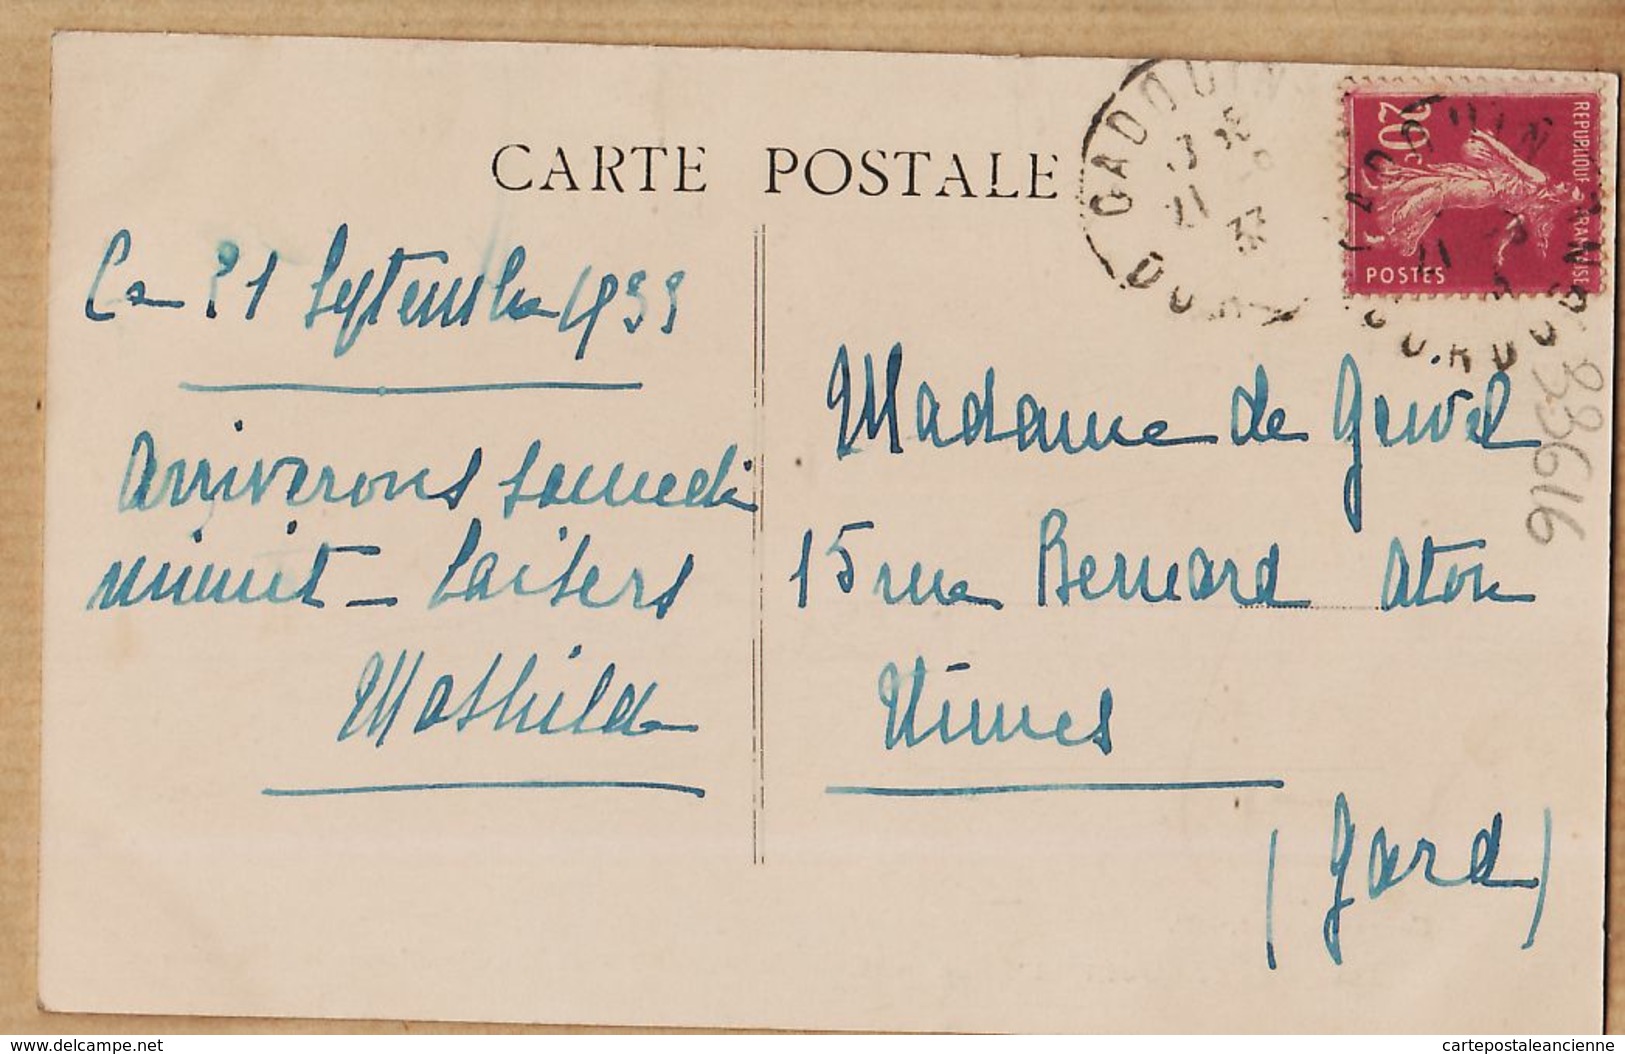 CARTE POSTALE
Ce 21 Septembre 1933
Arriverons samedi
minuit - baisers
Mathilde
Madame de Gruvel
15 rue Bernard Aton
Nîmes
(Gard)
REPUBLIQUE FRANÇAISE
20c
POSTES
CADOUIN
21 -9
33
DORDOGNE
33616
www.delcampe.net
cartepostaleancienne